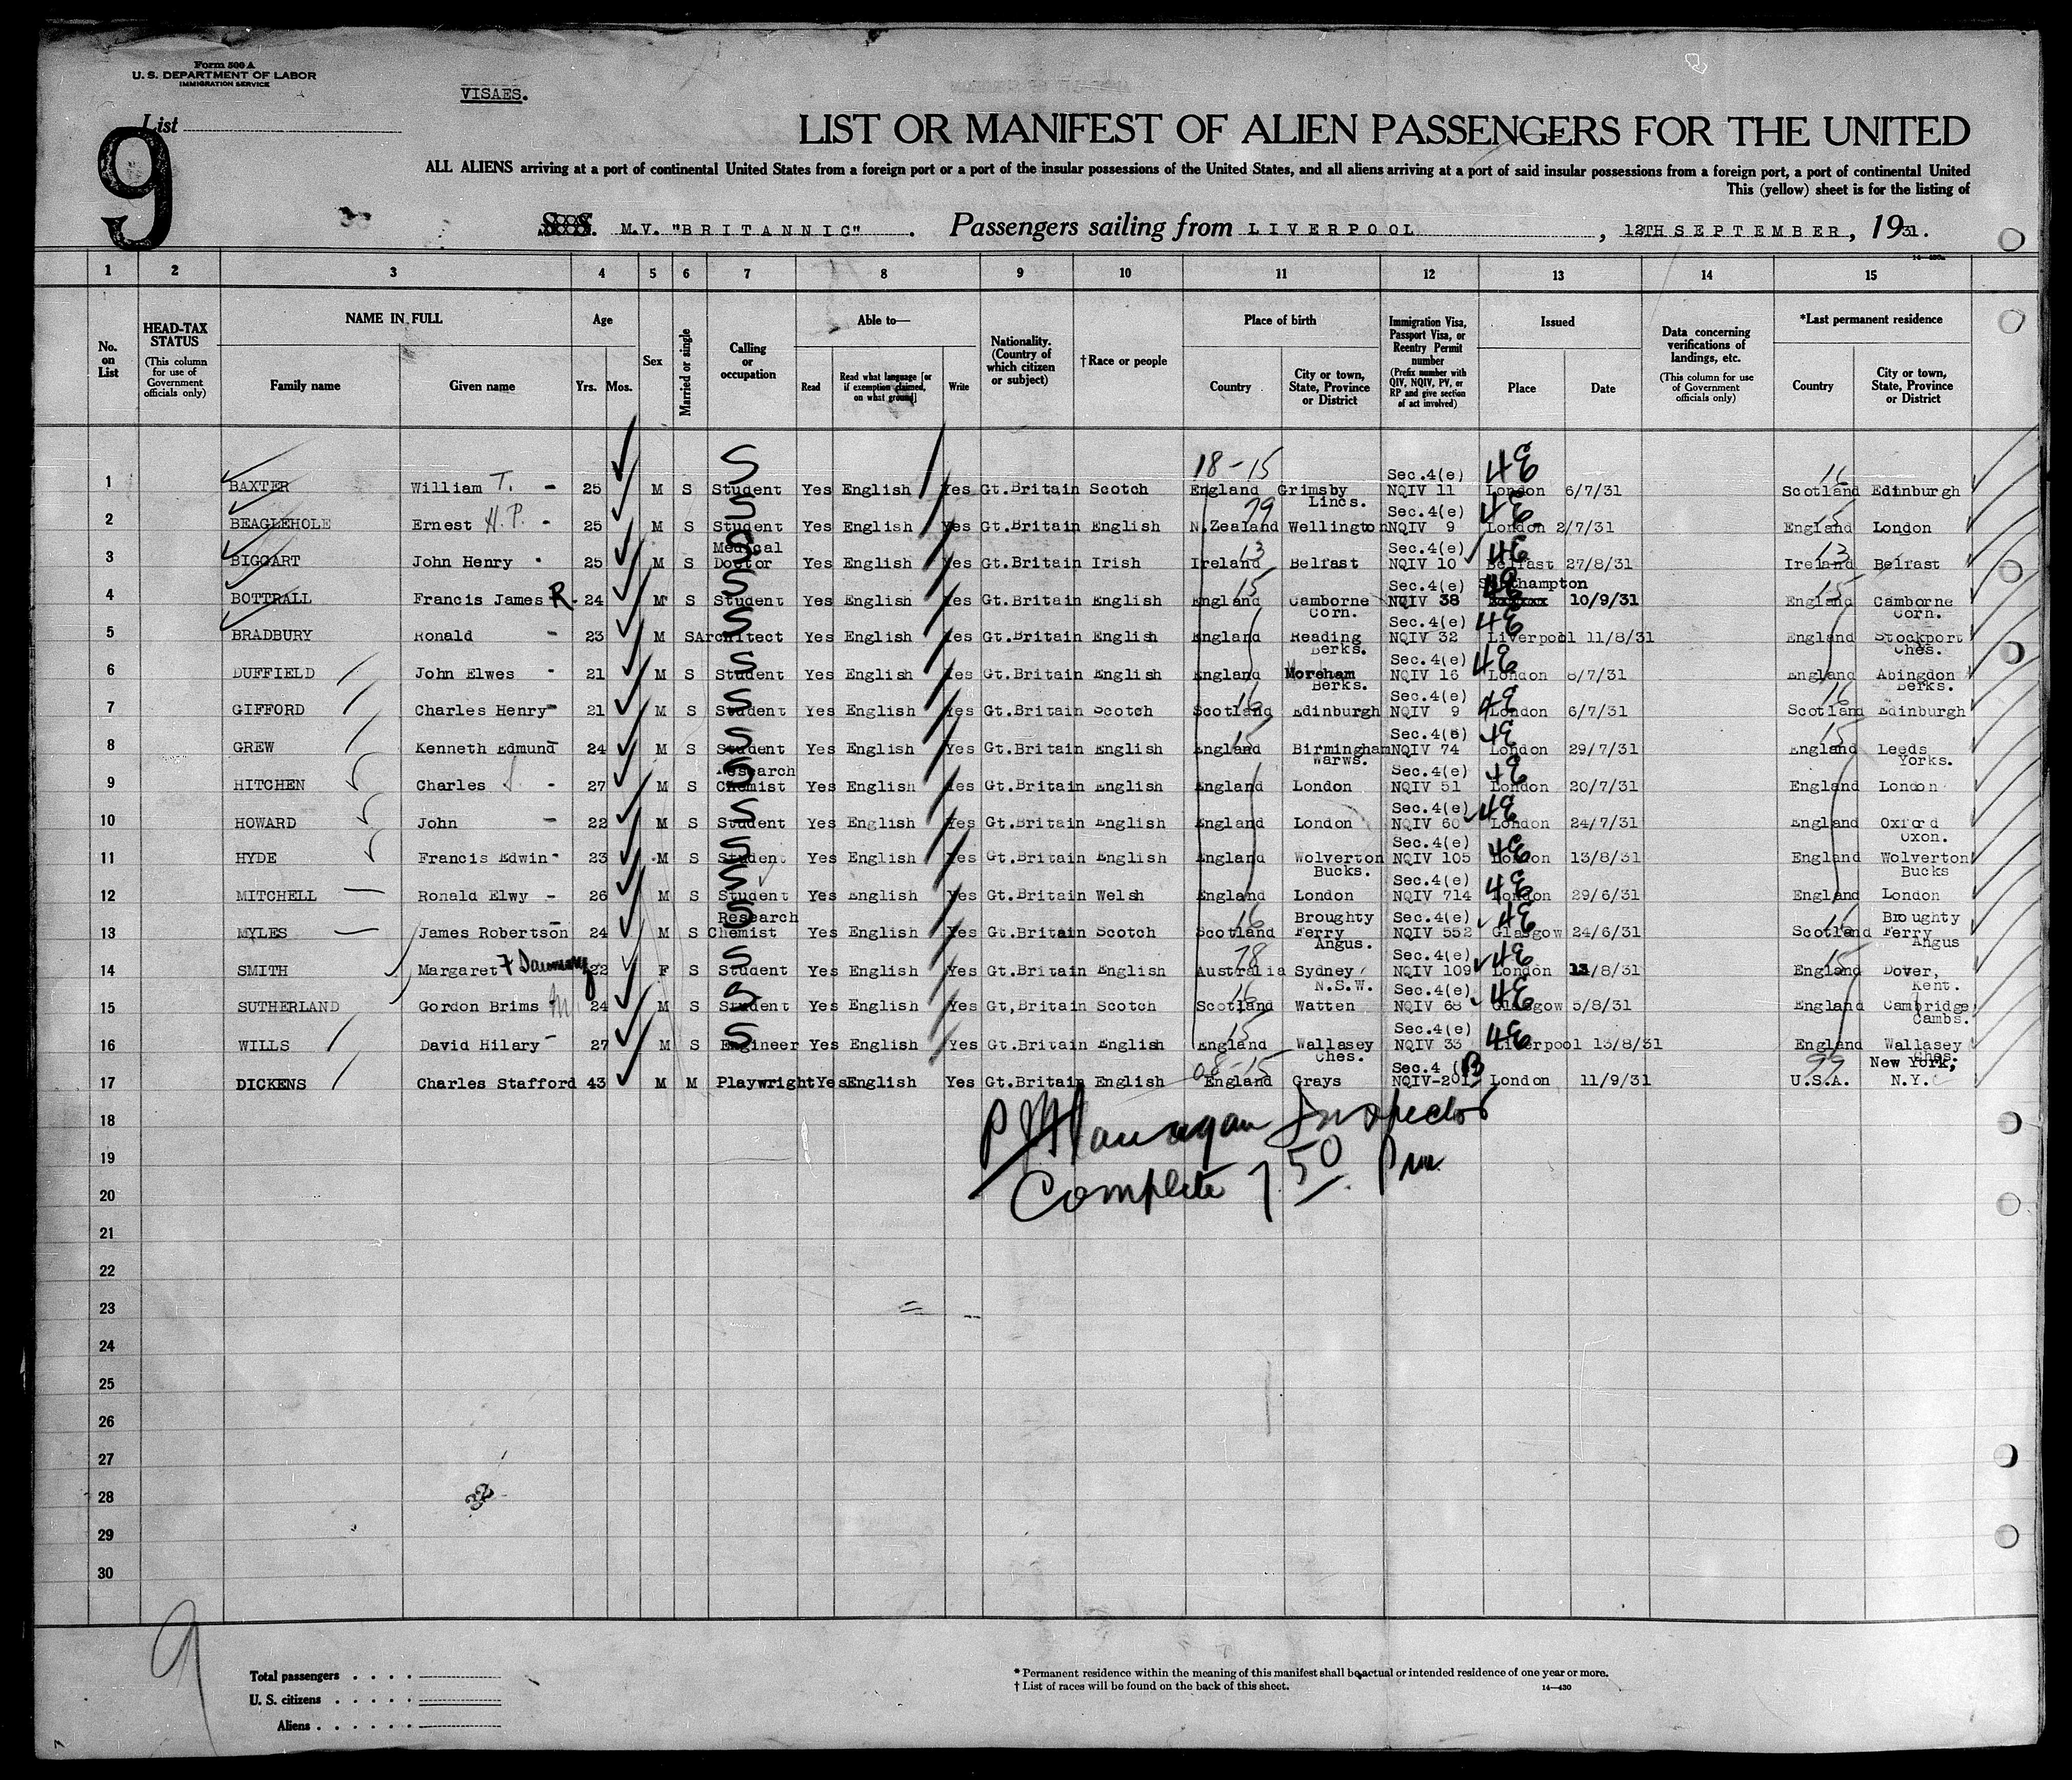 Form 500 A
U. S. DEPARTMENT OF LABOR
IMMIGRATION SERVICE
VISAES.
List
9
LIST OR MANIFEST OF ALIEN PASSENGERS FOR THE UNITED
ALL ALIENS arriving at a port of continental United States from a foreign port or a port of the insular possessions of the United States, and all aliens arriving at a port of said insular possessions from a foreign port, a port of continental United
This (yellow) sheet is for the listing of
M.V. "BRITANNIC" . Passengers sailing from LIVERPOOL , 12TH SEPTEMBER, 1931.
1 2 3 4 5 6 7 8 9 10 11 12 13 14 15
No. on List
HEAD-TAX STATUS (This column for use of Government officials only)
NAME IN FULL Family name Given name
Age Yrs. Mos.
Sex
Married or single
Calling or occupation
Able to— Read Read what language [or if exemption claimed, on what ground] Write
Nationality. (Country of which citizen or subject)
†Race or people
Place of birth Country City or town, State, Province or District
Immigration Visa, Passport Visa, or Reentry Permit number (Prefix number with QIV, NQIV, PV, or RP and give section of act involved)
Issued Place Date
Data concerning verifications of landings, etc. (This column for use of Government officials only)
*Last permanent residence Country City or town, State, Province or District
1 BAXTER William T. - 25 M S Student S Yes English Yes Gt.Britain Scotch 18-15 England Grimsby Lincs. Sec.4(e) NQIV 11 4E London 6/7/31 16 Scotland Edinburgh
2 BEAGLEHOLE Ernest H.P. - 25 M S Student S Yes English Yes Gt.Britain English 79 N.Zealand Wellington Sec.4(e) NQIV 9 4E London 2/7/31 15 England London
3 BIGGART John Henry 25 M S Medical Doctor S Yes English Yes Gt.Britain Irish 13 Ireland Belfast Sec.4(e) NQIV 10 4E Belfast 27/8/31 13 Ireland Belfast
4 BOTTRALL Francis James R. 24 M S Student S Yes English Yes Gt.Britain English 15 England Camborne Corn. Sec.4(e) NQIV 38 4E Southampton 10/9/31 15 England Camborne Corn.
5 BRADBURY Ronald - 23 M S Architect S Yes English Yes Gt.Britain English England Reading Berks. Sec.4(e) NQIV 32 4E Liverpool 11/8/31 England Stockport Ches.
6 DUFFIELD John Elwes - 21 M S Student S Yes English Yes Gt.Britain English England Moreham Berks. Sec.4(e) NQIV 16 4E London 8/7/31 England Abingdon Berks.
7 GIFFORD Charles Henry - 21 M S Student S Yes English Yes Gt.Britain Scotch 16 Scotland Edinburgh Sec.4(e) NQIV 9 4E London 6/7/31 16 Scotland Edinburgh
8 GREW Kenneth Edmund 24 M S Student S Yes English Yes Gt.Britain English 15 England Birmingham Warws. NQIV 74 4E London 29/7/31 15 England Leeds Yorks.
9 HITCHEN Charles - 27 M S Research Chemist S Yes English Yes Gt.Britain English England London Sec.4(e) NQIV 51 4E London 20/7/31 England London
10 HOWARD John - 22 M S Student S Yes English Yes Gt.Britain English England London Sec.4(e) NQIV 60 4E London 24/7/31 England Oxford Oxon.
11 HYDE Francis Edwin - 23 M S Student S Yes English Yes Gt.Britain English England Wolverton Bucks. Sec.4(e) NQIV 105 4E London 13/8/31 England Wolverton Bucks
12 MITCHELL Ronald Elwy - 26 M S Student S Yes English Yes Gt.Britain Welsh England London Sec.4(e) NQIV 714 4E London 29/6/31 England London
13 MYLES James Robertson 24 M S Research Chemist S Yes English Yes Gt.Britain Scotch 16 Scotland Broughty Ferry Angus. Sec.4(e) NQIV 552 4E Glasgow 24/6/31 16 Scotland Broughty Ferry Angus
14 SMITH Margaret 22 F S Student S Yes English Yes Gt.Britain English 78 Australia Sydney N.S.W. Sec.4(e) NQIV 109 4E London /8/31 15 England Dover, Kent.
15 SUTHERLAND Gordon Brims M 24 M S Student S Yes English Yes Gt,Britain Scotch 16 Scotland Watten Sec.4(e) NQIV 68 4E Glasgow 5/8/31 England Cambridge Cambs.
16 WILLS David Hilary - 27 M S Engineer S Yes English Yes Gt.Britain English 15 England Wallasey Ches. Sec.4(e) NQIV 33 4E Liverpool 13/8/31 England Wallasey Ches.
17 DICKENS Charles Stafford 43 M M Playwright Yes English Yes Gt.Britain English 08-15 England Grays Sec.4 (B NQIV-201 London 11/9/31 99 U.S.A. New York, N.Y.
18
P J Flannagan Inspector
19
Complete 7 50 Pm
20
21
22
23
24
25
26
27
28
32
29
30
9
Total passengers . . . .
U. S. citizens . . . . .
Aliens . . . . . .
* Permanent residence within the meaning of this manifest shall be actual or intended residence of one year or more.
† List of races will be found on the back of this sheet.
14—430